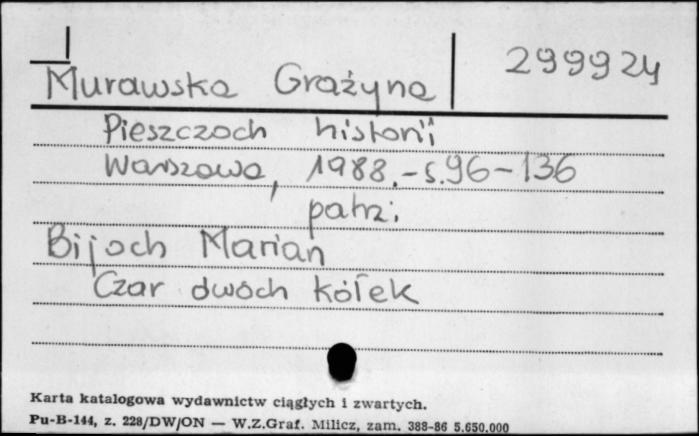 Murawska Grażyna 299924
Pieszczoch historii
Warszawa, 1988.-s.96-136
patrz:
Bijoch Marian
Czar dwóch kółek
Karta katalogowa wydawnictw ciągłych i zwartych.
Pu-B-144, z. 228/DW/ON — W.Z.Graf. Milicz, zam. 388-86 5.650.000